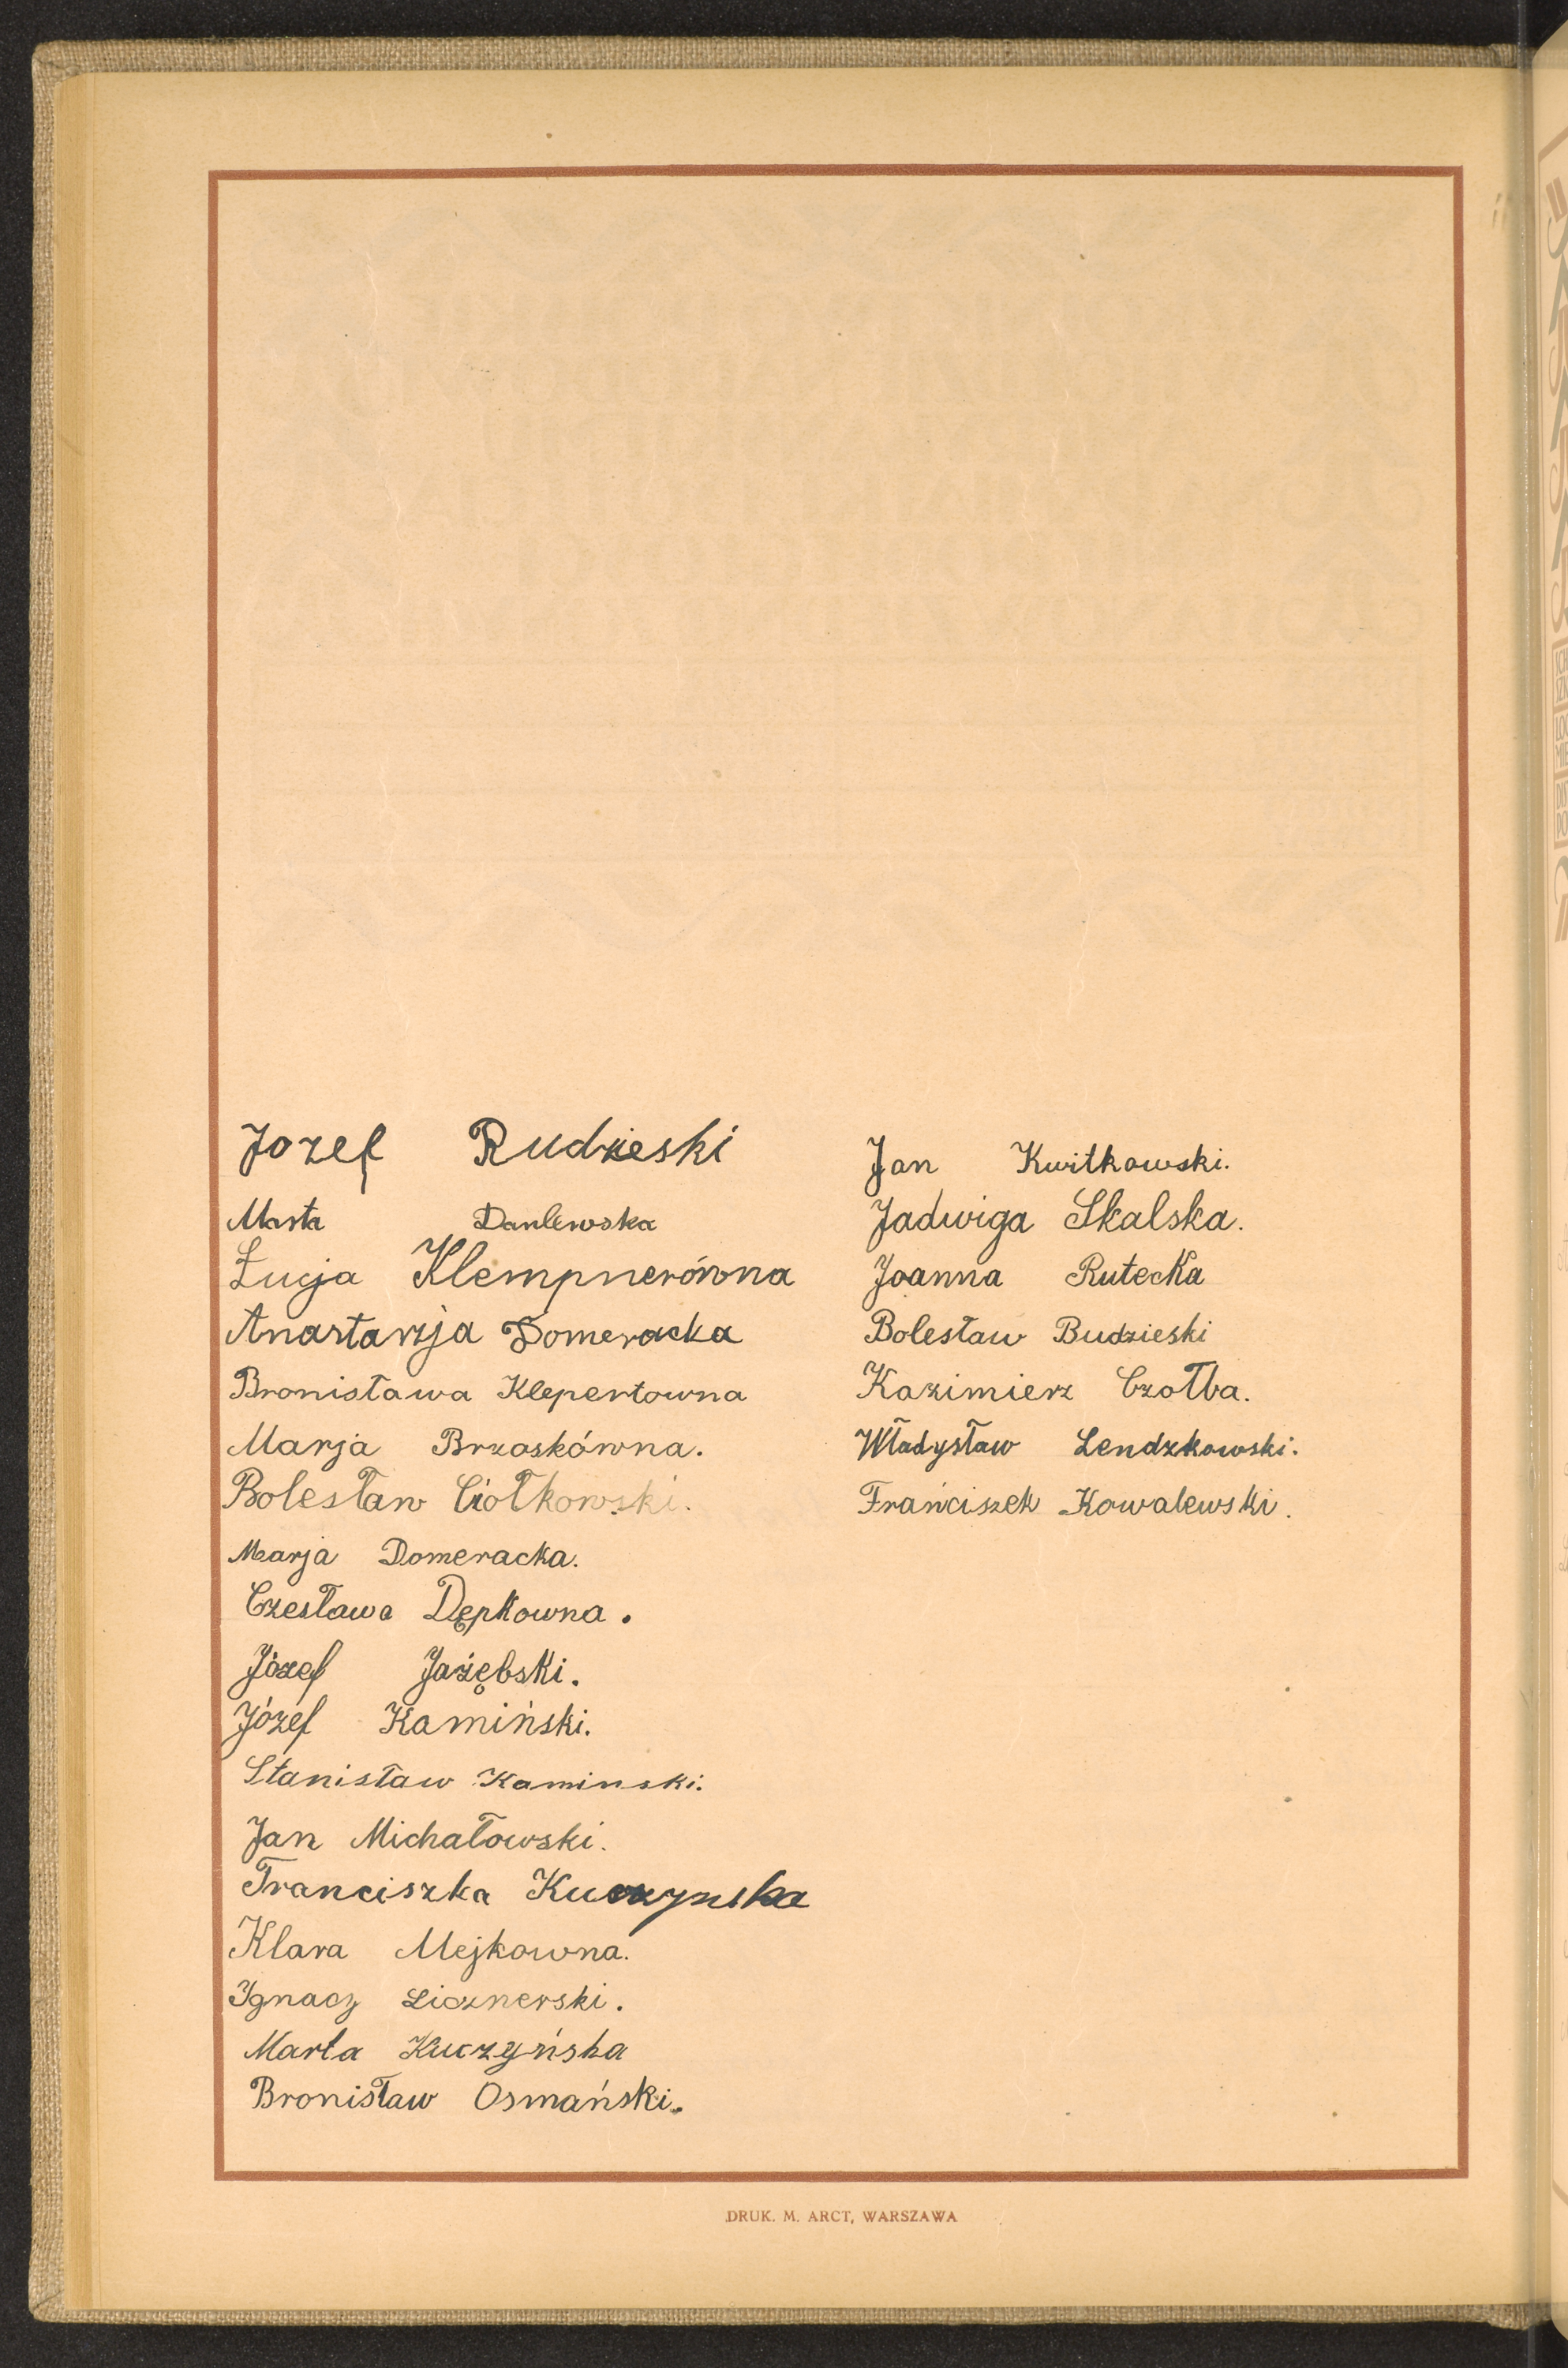 Jozef Rudzieski
Marta Danlewska
Łucja Klempnerówna
Anastazja Domeracka
Bronisława Klepertowna
Marja Brzoskówna.
Bolesław Ciołkowski.
Marja Domeracka.
Czesława Dępkowna.
Józef Jażębski.
Józef Kamiński.
Stanisław Kaminski.
Jan Michałowski.
Franciszka Kuczynska
Klara Mejkowna.
Ignacy Licznerski.
Marta Kuczyńska
Bronisław Osmański.
Jan Kwitkowski.
Jadwiga Skalska.
Joanna Rutecka
Bolesław Budzieski
Kazimierz Czołba.
Władysław Lendzkowski.
Frańciszek Kowalewski.
DRUK. M. ARCT, WARSZAWA